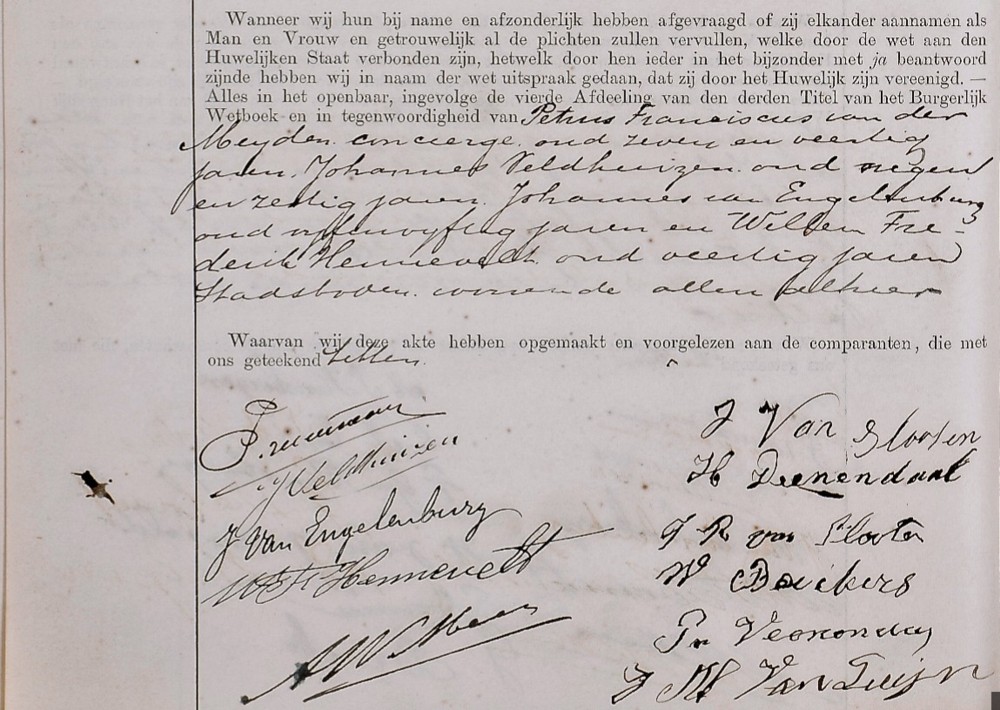 Wanneer wij hun bij name en afzonderlijk hebben afgevraagd of zij elkander aannamen als
Man en Vrouw en getrouwelijk al de plichten zullen vervullen, welke door de wet aan den
Huwelijken Staat verbonden zijn, hetwelk door hen ieder in het bijzonder met ja beantwoord
zijnde hebben wij in naam der wet uitspraak gedaan, dat zij door het Huwelijk zijn vereenigd. —
Alles in het openbaar, ingevolge de vierde Afdeeling van den derden Titel van het Burgerlijk
Wetboek en in tegenwoordigheid van Petrus Franciscus van der
Meyden concierge oud zeven en veertig
jaren. Johannes Veldhuizen oud negen
en zestig jaren. Johannes van Engelenburg
oud vijfenvijftig jaren en Willem Fre-
derik Hennevelt oud veertig jaren
Stadsboden wonende allen alhier
Waarvan wij deze akte hebben opgemaakt en voorgelezen aan de comparanten, die met
ons geteekend hebben.
J Van Slooten
J Veldhuizen
H Veenendaal
J Van Engelenburg
J R van Slooten
W F Hennevelt
W
A W
P
J M Van Tuijn